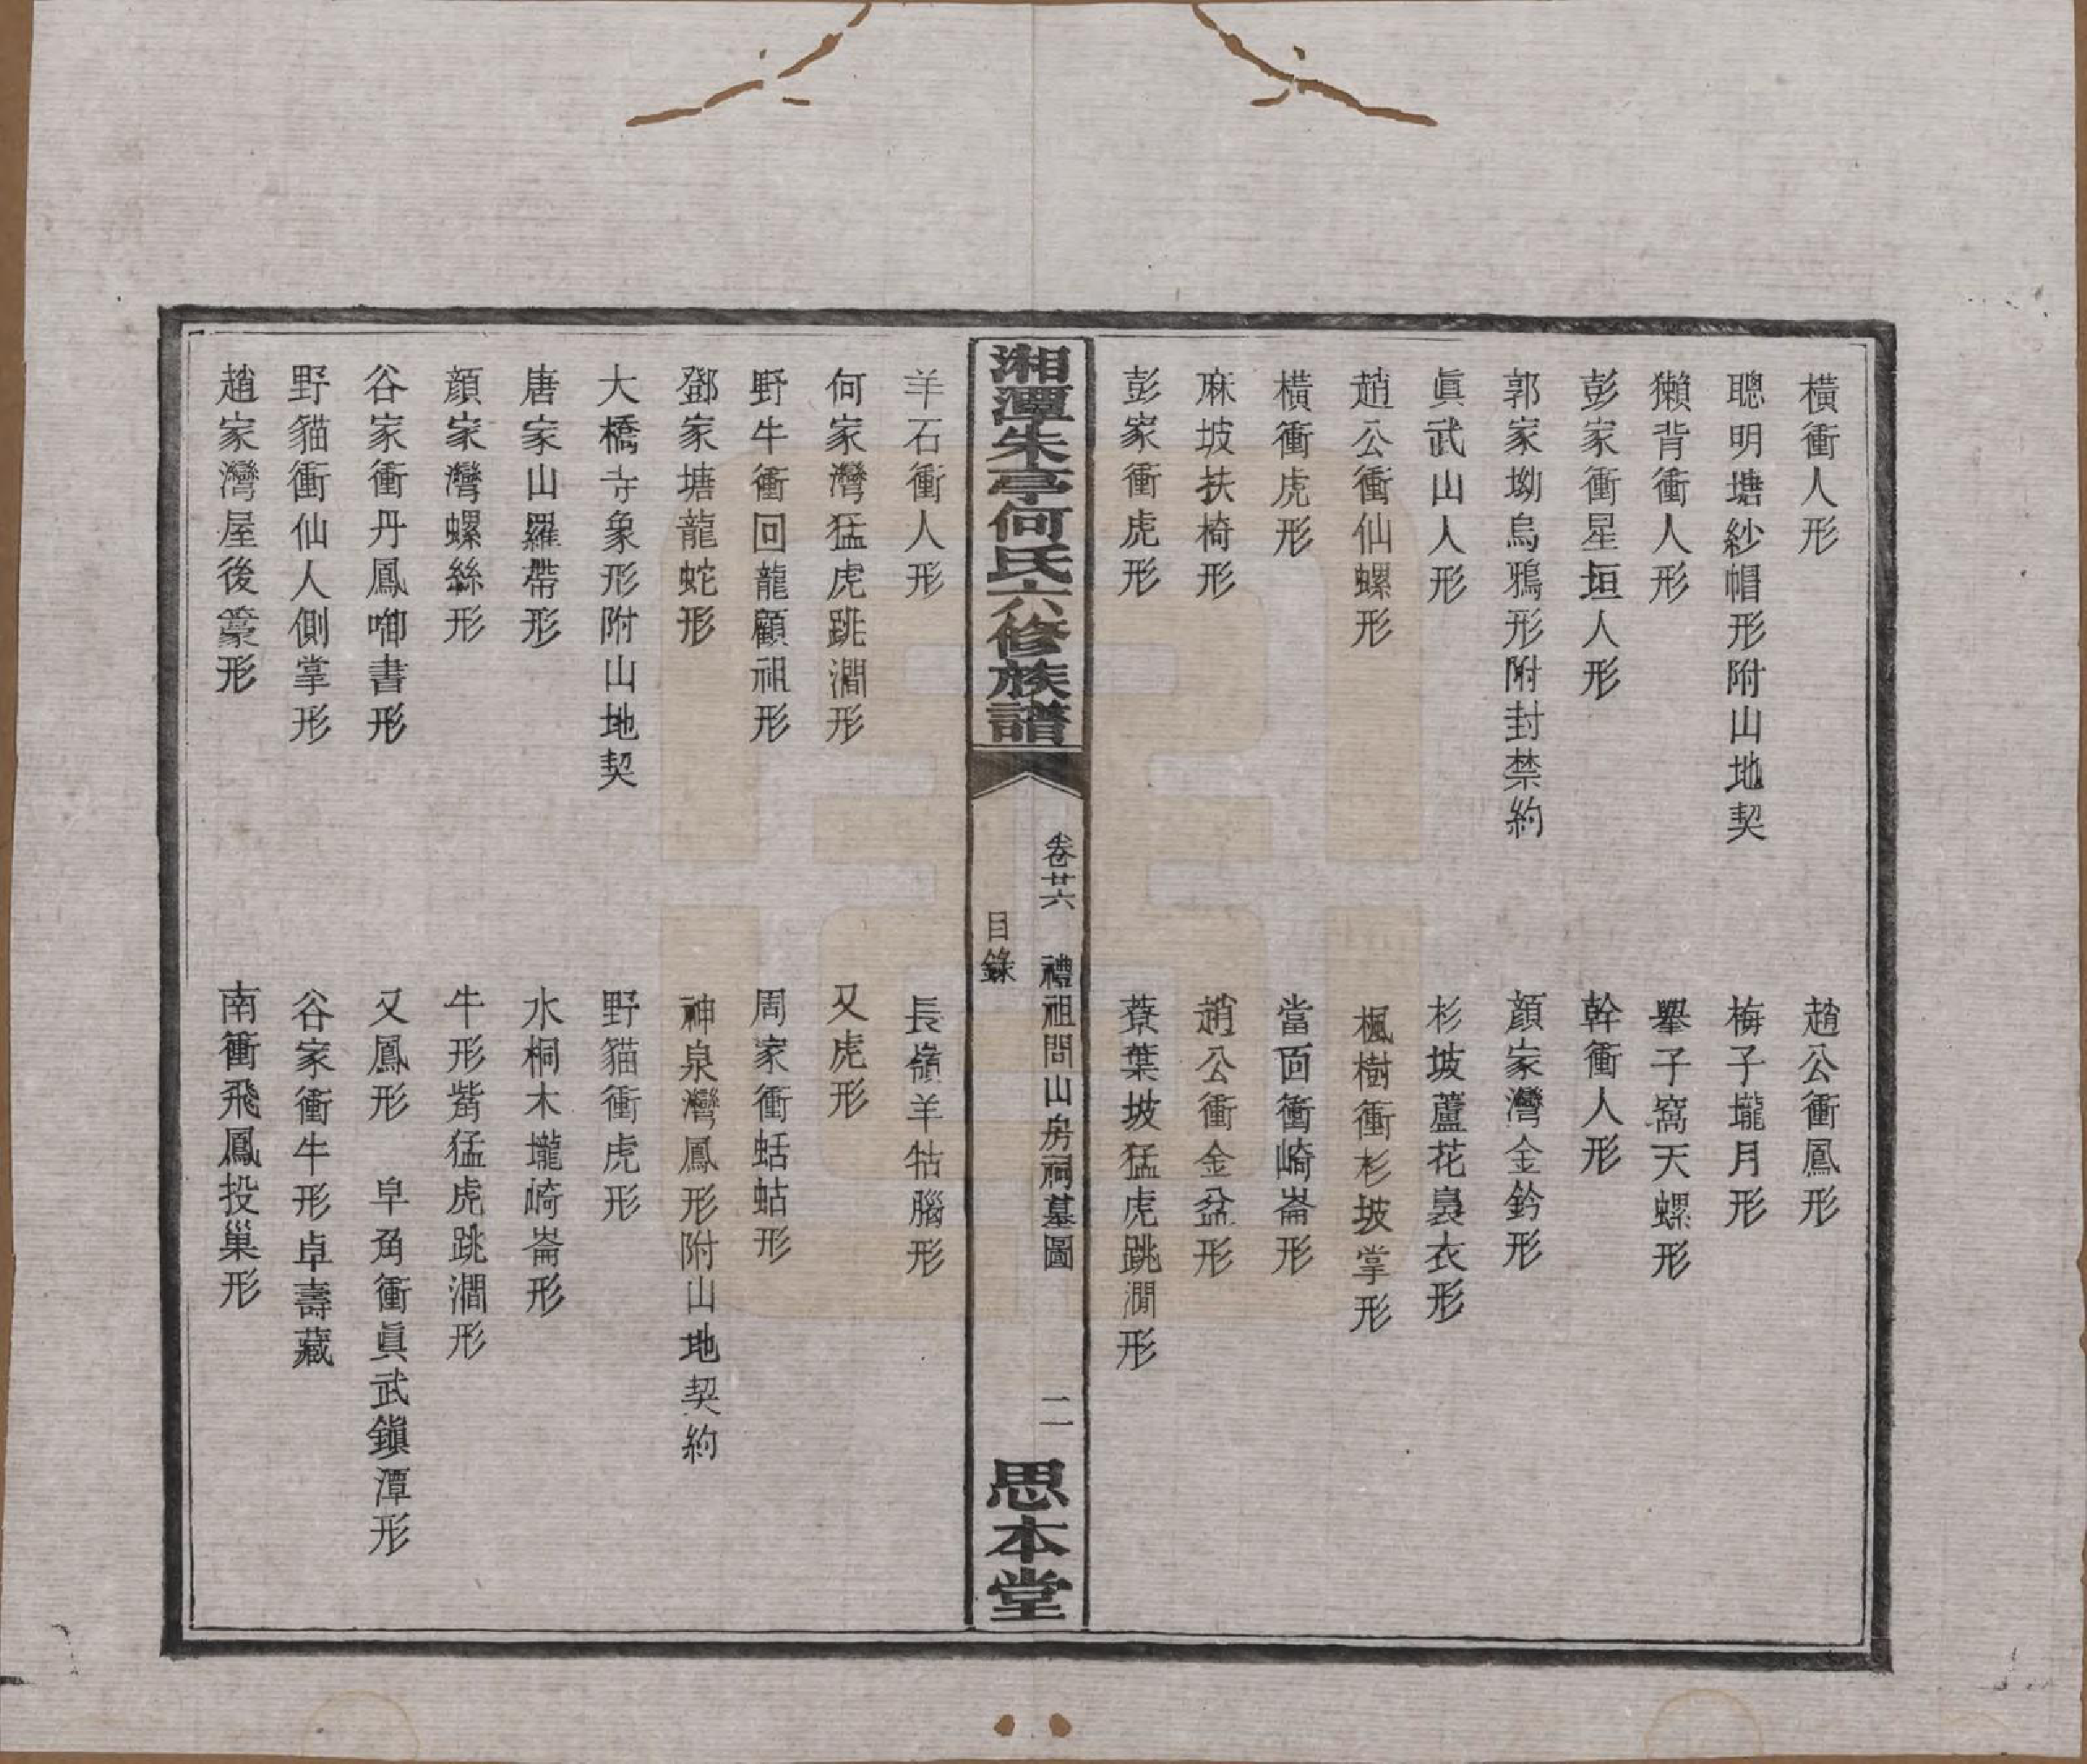 橫衝人形　趙公衝鳳形
聰明塘紗帽形附山地契　梅子壠月形
獺背衝人形　舉子窩天螺形
彭家衝星垣人形　幹衝人形
郭家坳烏鴉形附封禁約　顏家灣金鈴形
眞武山人形　杉坡蘆花裊衣形
趙公衝仙螺形　楓樹衝杉坡掌形
橫衝虎形　當面衝崎崙形
麻坡扶椅形　趙公衝金盆形
彭家衝虎形　蔡葉坡猛虎跳澗形
湘潭朱亭何氏六修族譜
卷廿六　禮祖問山房祠墓圖　二
目錄
思本堂
羊石衝人形　長嶺羊牯腦形
何家灣猛虎跳澗形　又虎形
野牛衝回龍顧祖形　周家衝蛞蛄形
鄧家塘龍蛇形　神泉灣鳳形附山地契約
大橋寺象形附山地契　野貓衝虎形
唐家山羅帶形　水桐木壠崎崙形
顏家灣螺絲形　牛形嘴猛虎跳澗形
谷家衝丹鳳啣書形　又鳳形　皁角衝眞武鎮潭形
野貓衝仙人側掌形　谷家衝牛形卓壽藏
趙家灣屋後形　南衝飛鳳投巢形